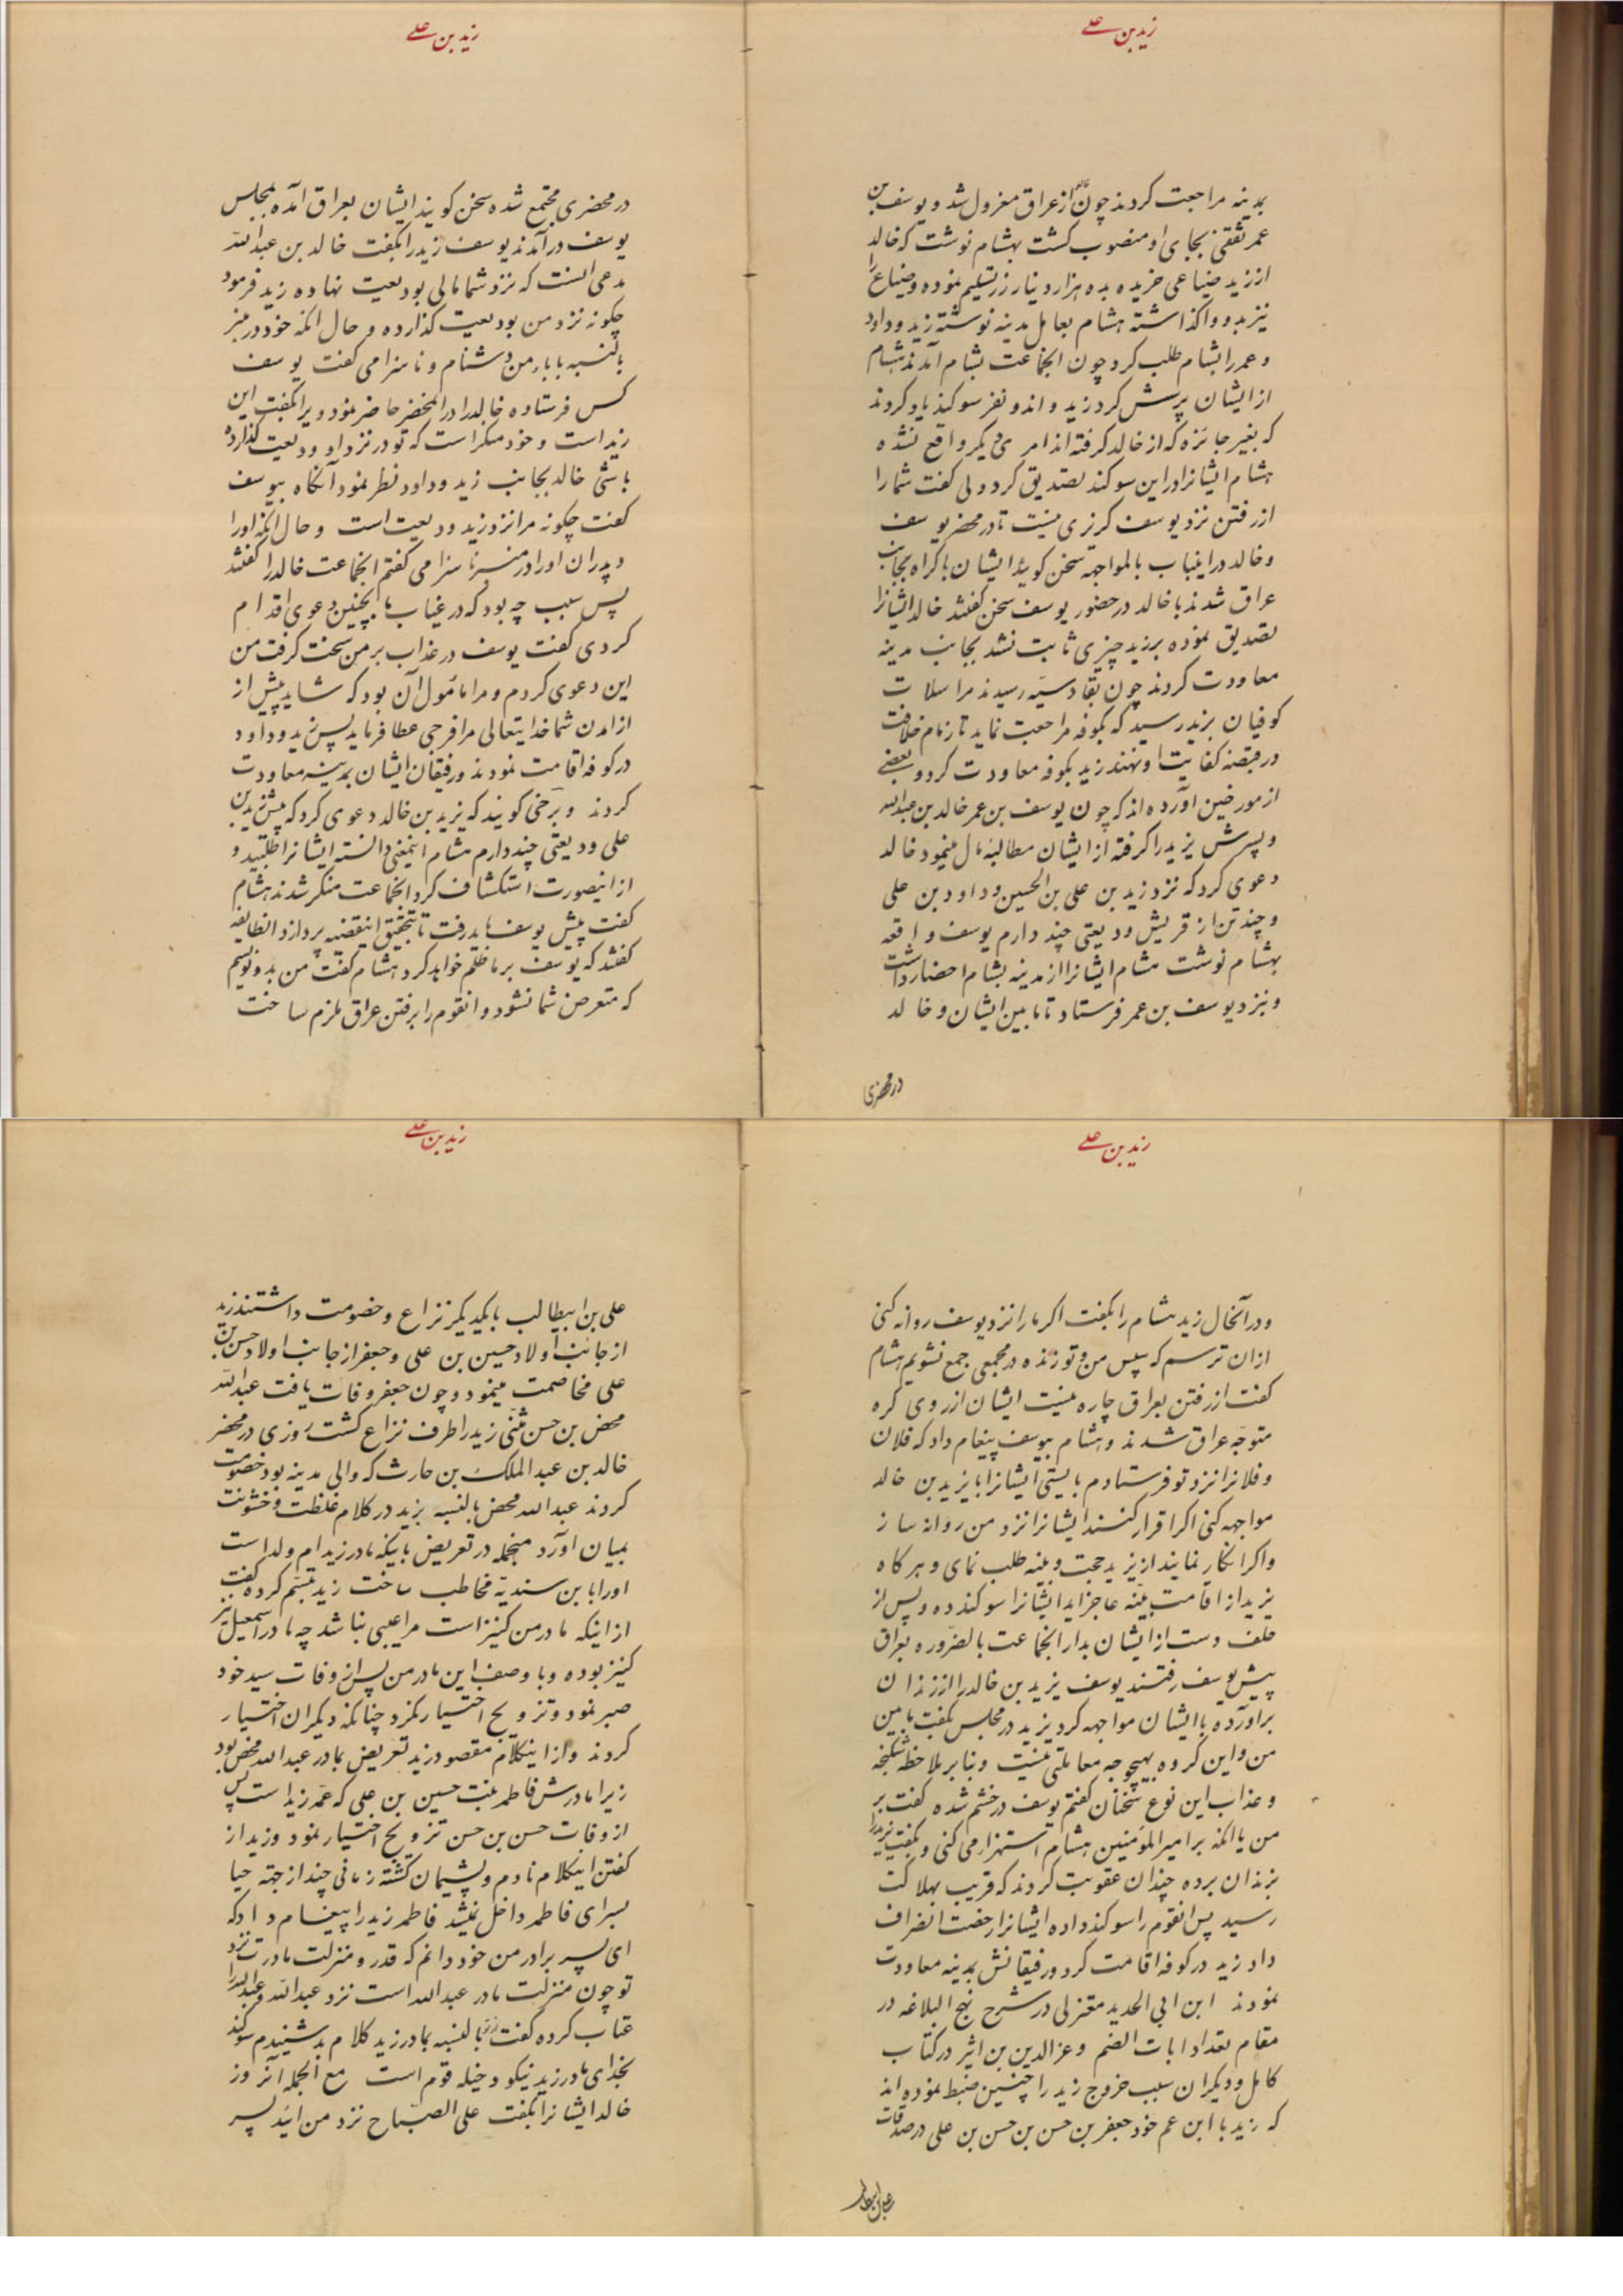 زید بن علی
بمدینه مراجعت کردند چون از عراق معزول شد و یوسف بن
عمر ثقفی بجای او منصوب کشت بهشام نوشت که خالد
از زید ضیاعی خریده بده هزار دینار زر تسلیم نموده و ضیاع را
نیز بدو واکذاشته هشام بعامل مدینه نوشته زید و داود
و عمر را بشام طلب کرد چون انجماعت بشام آمدند هشام
از ایشان پرسش کرد زید و اندو نفر سوکند یاد کردند
که بغیر جائزه که از خالد کرفته اند امری دیکر واقع نشده
هشام ایشانرا در این سوکند تصدیق کرد ولی کفت شما را
از رفتن نزد یوسف کریزی نیست تا در محضر یوسف
و خالد در اینباب بالمواجهه سخن کوئید ایشان باکراه بجانب
عراق شدند با خالد در حضور یوسف سخن کفتند خالد ایشانرا
تصدیق نموده بر زید چیزی ثابت نشد بجانب مدینه
معاودت کردند چون بقادسیه رسیدند مراسلات
کوفیان بزید رسید که بکوفه مراجعت نماید تا زمام خلافت
در قبضه کفایت او نهند زید بکوفه معاودت کرد و بعضی
از مورخین آورده اند که چون یوسف بن عمر خالد بن عبدالله
و پسرش یزید را کرفته از ایشان مطالبه مال مینمود خالد
دعوی کرد که نزد زید بن علی بن الحسین و داود بن علی
و چند تن از قریش ودیعتی چند دارم یوسف واقعه
بهشام نوشت هشام ایشانرا از مدینه بشام احضار داشت
و نزد یوسف بن عمر فرستاد تا مابین ایشان و خالد
در محضری
زید بن علی
در محضری مجتمع شده سخن کویند ایشان بعراق آمده بمجلس
یوسف درآمدند یوسف زید را بکفت خالد بن عبدالله
مدعی است که نزد شما مالی بودیعت نهاده زید فرمود
چکونه نزد من بودیعت کذارده و حال انکه خود در منبر
بالنسبه بابا‌ء من دشنام و ناسزا می کفت یوسف
کس فرستاده خالد را در المحضر حاضر نمود و یرا بکفت این
زید است و خود منکر است که تو در نزد او ودیعت کذارده
باشی خالد بجانب زید و داود نظر نمود آنکاه بیوسف
کفت چکونه مرا نزد زید ودیعت است و حال انکه او را
و پدران او را در منبر ناسزا می کفتم انجماعت خالد را کفتند
پس سبب چه بود که در غیاب ما اینچنین دعوی اقدام
کردی کفت یوسف در عذاب بر من سخت کرفت من
این دعوی کردم و مرا مامول آن بود که شاید پیش از
از امدن شما خدایتعالی مرا فرجی عطا فرماید پس زید و داود
در کوفه اقامت نمودند و رفیقان ایشان بمدینه معاودت
کردند و برخی کویند که یزید بن خالد دعوی کرد که پیش زید بن
علی ودیعتی چند دارم هشام اینمعنی دانسته ایشانرا طلبید و
از اینصورت استکشاف کرد انجماعت منکر شدند هشام
کفت پیش یوسف باید رفت تا بتحقیق اینقضیه پردازد انطایفه
کفتند که یوسف بر ما ظلم خواهد کرد هشام کفت من بدو نویسم
که متعرض شما نشود و انقوم را برفتن عراق ملزم ساخت
زید بن علی
و در آنحال زید هشام را بکفت اکر ما را نزد یوسف روانه کنی
از ان ترسم که سپس من و تو زنده در مجمعی جمع نشویم هشام
کفت از رفتن بعراق چاره نیست ایشان از روی کره
متوجه عراق شدند و هشام بیوسف پیغام داد که فلان
و فلانرا نزد تو فرستادم بایستی ایشانرا با یزید بن خالد
مواجهه کنی اکر اقرار کنند ایشانرا نزد من روانه ساز
و اکر انکار نمایند از یزید حجت و بینه طلب نمای و هر کاه
یزید از اقامت بینه عاجز اید ایشانرا سوکند ده و پس از
حلف دست از ایشان بدار انجماعت بالضروره بعراق
پیش یوسف رفتند یوسف یزید بن خالد را از زندان
برآورده با ایشان مواجهه کرد یزید در مجلس بکفت مابین
من و این کروه بهیچوجه معاملتی نیست و بنابر ملاحظه شکنجه
و عذاب این نوع سخنان کفتم یوسف در خشم شده کفت بر
من یا انکه بر امیرالمومنین هشام استهزا می کنی و بکفت یزید را
بزندان برده چندان عقوبت کردند که قریب بهلاکت
رسید پس انقوم را سوکند داده ایشانرا رخصت انصراف
داد زید در کوفه اقامت کرد و رفیقانش بمدینه معاودت
نمودند ابن ابی الحدید معتزلی در شرح نهج البلاغه در
مقام تعداد ابات الضیم و عزالدین بن اثیر در کتاب
کامل و دیکران سبب خروج زید را چنین ضبط نموده اند
که زید با ابن عم خود جعفر بن حسن بن حسن بن علی در صدقات
علی بن ابیطالب
زید بن علی
علی بن ابیطالب با یکدیکر نزاع و خصومت داشتند زید
از جانب اولاد حسین بن علی و جعفر از جانب اولاد حسن بن
علی مخاصمت مینمود و چون جعفر وفات یافت عبدالله
محض بن حسن مثنی زید را طرف نزاع کشت روزی در محضر
خالد بن عبدالملک بن حارث که والی مدینه بود خصومت
کردند عبدالله محض بالنسبه بزید در کلام غلظت و خشونت
بمیان آورد منجمله در تعریض باینکه مادر زید ام ولد است
او را یابن سندیه مخاطب ساخت زید تبسم کرده کفت
از اینکه مادر من کنیز است مرا عیبی نباشد چه مادر اسمعیل نیز
کنیز بوده و با وصف این مادر من پس از وفات سید خود
صبر نمود و تزویج اختیار نکرد چنانکه دیکران اختیار
کردند و از اینکلام مقصود زید تعریض بمادر عبدالله محض بود
زیرا مادرش فاطمه بنت حسین بن علی که عمه زید است پس
از وفات حسن بن حسن تزویج اختیار نمود و زید از
کفتن اینکلام نادم و پشیمان کشته زمانی چند از جهة حیا
بسرای فاطمه داخل نمیشد فاطمه زید را پیغام داد که
ای پسر برادر من خود دانم که قدر و منزلت مادرت نزد
تو چون منزلت مادر عبدالله است نزد عبدالله و عبدالله را
عتاب کرده کفت بالنسبه بمادر زید کلام بد شنیدم سوکند
بخدای مادر زید نیکو دخیله قوم است مع الجمله آنروز
خالد ایشانرا بکفت علی الصباح نزد من ائید پسر